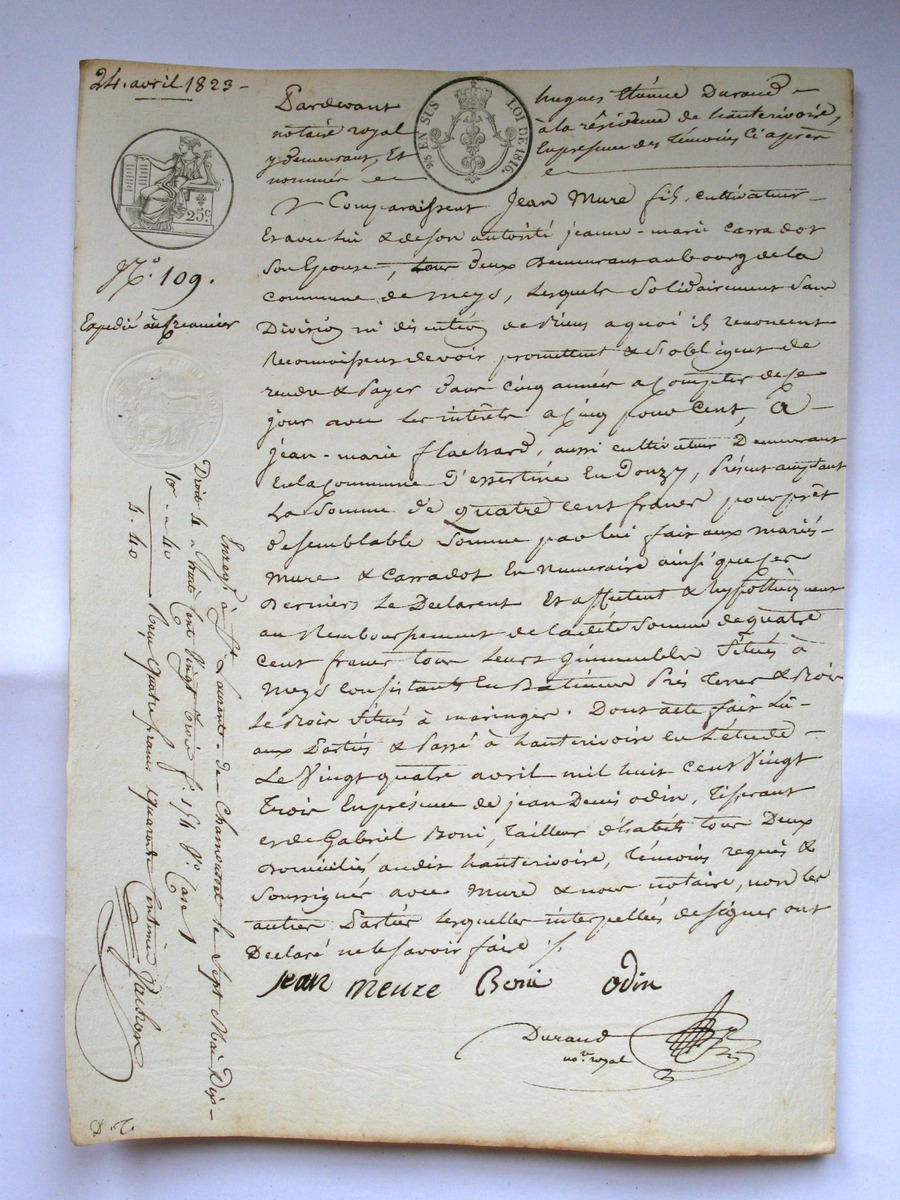 24. avril 1823 -
Pardevant hugues Etienne Durand -
notaire royal à la résidence de hauterivoire,
y demeurant, Et En présence des témoins Ci après
nommés
EN SUS LOI DE 1816.
25c.
N.o 109.
Expedié au Creancier
Comparaissent Jean Mure fils, cultivateur
Et avec lui & de son autorité jeanne-marie Carradot
Son Epouse, tous deux demeurant au bourg de la
commune de meys, lesquels Solidairement Sans
Division ni discution de Biens a quoi ils renoncent
Reconnaissent devoir promettent & S'obligent de
rendre & Payer dans Cinq années a compter de ce
jour avec les intérêts a cinq pour cent, à
jean-marie flachard, aussi cultivateur Demeurant
En la Commune d'essertine En Donzy, Présent acceptant
La Somme de quatre cent francs pour prêt
de semblable Somme par lui fait aux mariés
Mure & Carradot En Numeraire ainsi que ces
Derniers Le Déclarent Et affectent & hypothequent
au Remboursement de la dite Somme de quatre
cent francs tous Leurs Jmmeubles Situés à
Meys Consistants En Batiments Prés terres & Bois
Le Bois Situés à maringes. Dont acte fait Lu
aux Parties & Passé à hauterivoire en L'étude
Le Vingt quatre avril mil huit cent Vingt
Trois En présence de jean Denis odin, Tisserant
et de Gabriel Boni, Tailleur d'habits tous Deux
Domiciliés audit hauterivoire, Témoins requis &
Soussignés avec Mure & nous notaire, non les
autres Parties Lesquelles interpellées de signer ont
Déclaré ne le savoir faire
jean meure Boni odin
Durand
no.re royal
Enregé. à St. Laurent-de Chamousset le Sept Mai dix-
huit Cent Vingt Trois f.o 151 V.o Case 1
Reçu quatre francs quarante Centimes
Droit 4
10e - 40
4. 40